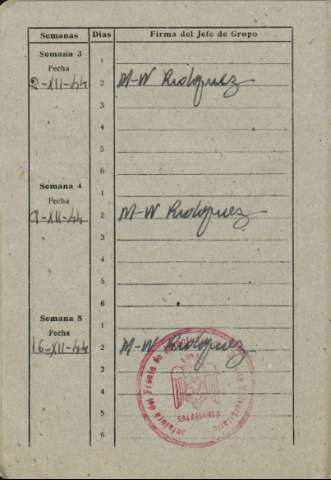 Semanas Días Firma del Jefe de Grupo
Semana 3
1
Fecha
2-XII-44 2 M-W Rodriguez
3
4
5
6
Semana 4
1
Fecha
9-XII-44 2 M-W Rodriguez
3
4
5
6
Semana 5
1
Fecha
16-XII-44 2 M-W Rodriguez
3
4
5
6
Frente de
SALAMANCA